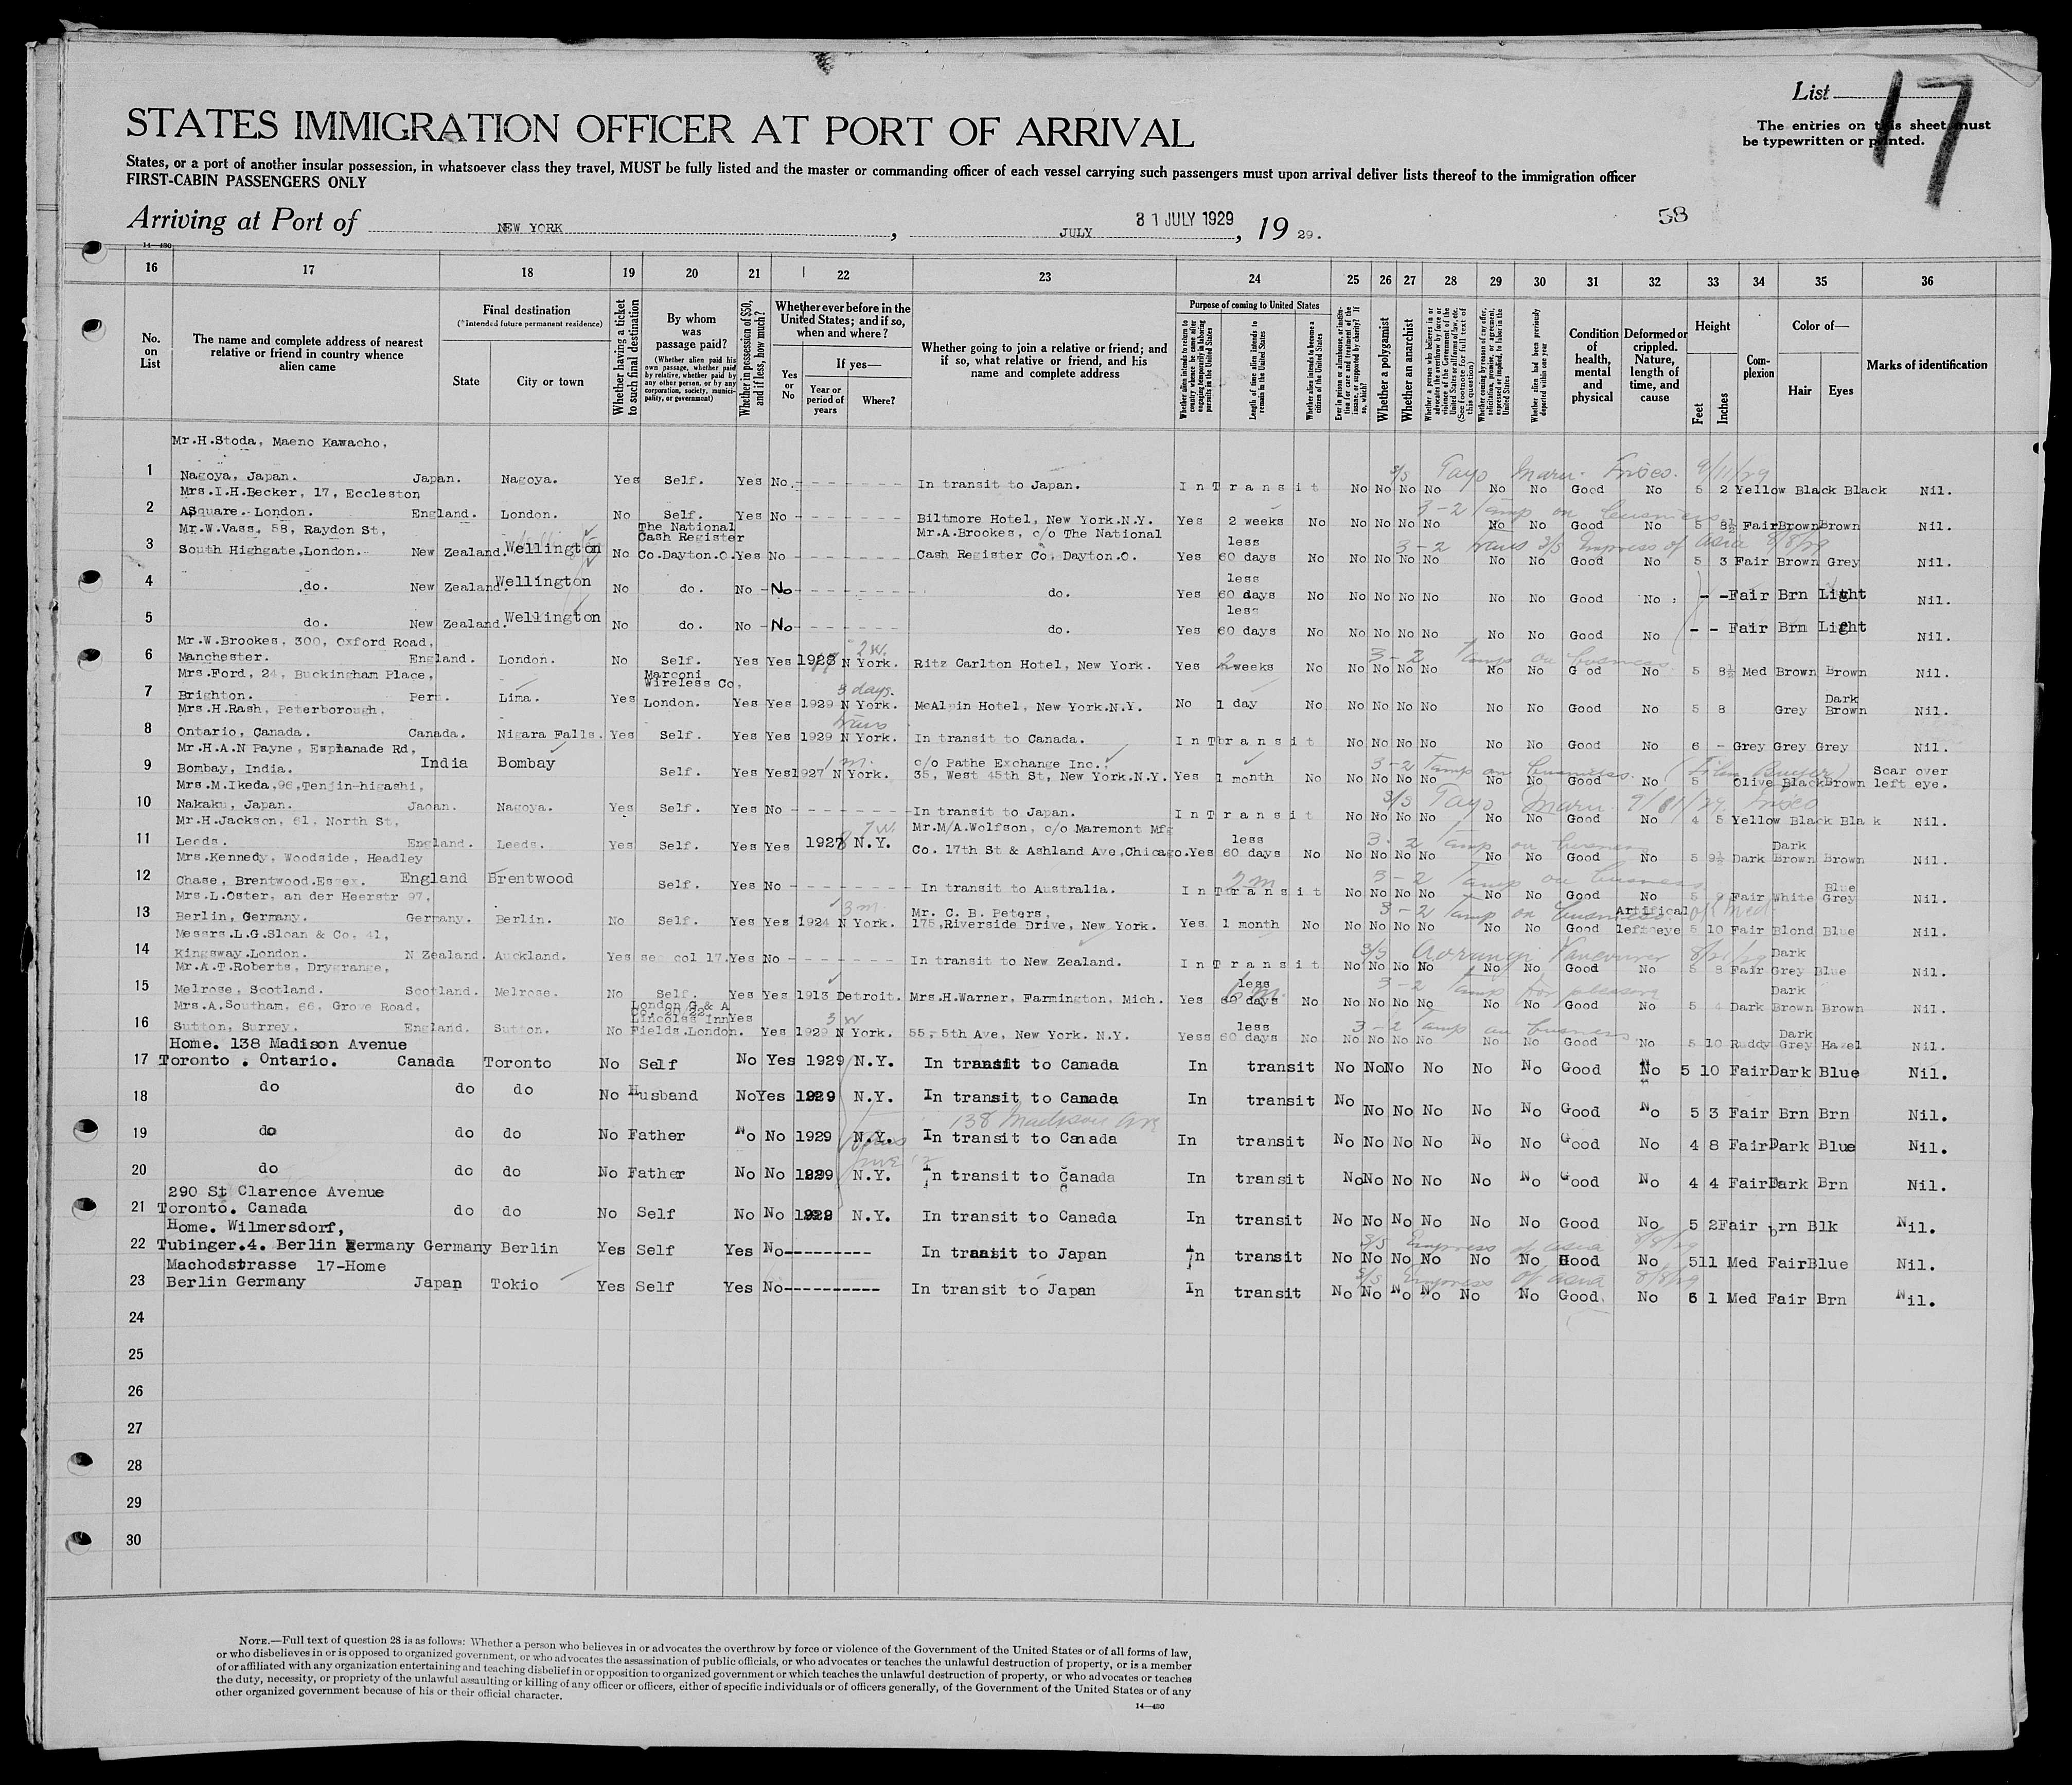 List 17
STATES IMMIGRATION OFFICER AT PORT OF ARRIVAL
The entries on this sheet must
be typewritten or printed.
States, or a port of another insular possession, in whatsoever class they travel, MUST be fully listed and the master or commanding officer of each vessel carrying such passengers must upon arrival deliver lists thereof to the immigration officer
FIRST-CABIN PASSENGERS ONLY
Arriving at Port of NEW YORK, JULY 31 JULY 1929, 19 29.
58
14—430
16 17 18 19 20 21 22 23 24 25 26 27 28 29 30 31 32 33 34 35 36
No. on List
The name and complete address of nearest relative or friend in country whence alien came
Final destination
(*Intended future permanent residence)
State City or town
Whether having a ticket to such final destination
By whom was passage paid?
(Whether alien paid his own passage, whether paid by relative, whether paid by any other person, or by any corporation, society, municipality, or government)
Whether in possession of $50, and if less, how much?
Whether ever before in the United States; and if so, when and where?
Yes or No
If yes—
Year or period of years Where?
Whether going to join a relative or friend; and if so, what relative or friend, and his name and complete address
Purpose of coming to United States
Whether alien intends to return to country whence he came after engaging temporarily in laboring pursuits in the United States
Length of time alien intends to remain in the United States
Whether alien intends to become a citizen of the United States
Ever in prison or almshouse, or institution for care and treatment of the insane, or supported by charity? If so, which?
Whether a polygamist
Whether an anarchist
Whether a person who believes in or advocates the overthrow by force or violence of the Government of the United States or all forms of law, etc. (See footnote for full text of this question)
Whether coming by reason of any offer, solicitation, promise, or agreement, expressed or implied, to labor in the United States
Whether alien had been previously deported within one year
Condition of health, mental and physical
Deformed or crippled. Nature, length of time, and cause
Height
Feet Inches
Complexion
Color of—
Hair Eyes
Marks of identification
Mr.H.Stoda, Maeno Kawacho,
S/S Tayo Maru. Frisco. 9/11/29
1 Nagoya, Japan. Japan. Nagoya. Yes Self. Yes No.- - - - - - In transit to Japan. In Transit No No No No No No Good No 5 2 Yellow Black Black Nil.
Mrs.I.H.Becker, 17, Eccleston
3-2 Temp on business
2 Square.-London. England. London. No Self. Yes No - - - - - - Biltmore Hotel, New York.N.Y. Yes 2 weeks No No No No No No No Good No 5 8½ Fair Brown Brown Nil.
Mr.W.Vass, 58, Raydon St, The National Cash Register Mr.A.Brookes, c/o The National less
3-2 trans S/S Empress of Asia 8/8/29
3 South Highgate,London. New Zealand. Wellington No Co.Dayton.O. Yes No - - - - - - Cash Register Co, Dayton.O. Yes 60 days No No No No No No No Good No 5 3 Fair Brown Grey Nil.
less
4 do. New Zealand. Wellington No do. No -No- - - - - - do. Yes 60 days No No No No No No No Good No - - Fair Brn Light Nil.
less
5 do. New Zealand. Wellington No do. No -No- - - - - - do. Yes 60 days No No No No No No No Good No - - Fair Brn Light Nil.
Mr.W.Brookes, 300, Oxford Road, 2w.
3-2 Temp on business
6 Manchester. England. London. No Self. Yes Yes 1928 N York. Ritz Carlton Hotel, New York. Yes 2 weeks No No No No No No Good No 5 8½ Med Brown Brown Nil.
Mrs.Ford, 24, Buckingham Place, Marconi Wireless Co, 3 days.
7 Brighton. Peru. Lima. Yes London. Yes Yes 1929 N York. McAlpin Hotel, New York.N.Y. No 1 day No No No No No No No Good No 5 8 Grey Dark Brown Nil.
Mrs.H.Rash, Peterborough, trans
8 Ontario, Canada. Canada. Nigara Falls. Yes Self. Yes Yes 1929 N York. In transit to Canada. In Transit No No No No No No Good No 6 - Grey Grey Grey Nil.
Mr.H.A.N Payne, Esplanade Rd, 1 m. c/o Pathe Exchange Inc.,
3-2 Temp on business. (Film Buyer)
9 Bombay, India. India Bombay Self. Yes Yes 1927 N York. 35, West 45th St, New York.N.Y. Yes 1 month No No No No No No No Good No 5 Olive Black Brown Scar over left eye.
Mrs.M.Ikeda,96,Tenjin-higashi,
S/S Tayo Maru. 9/11/29 Frisco
10 Nakaku, Japan. Japan. Nagoya. Yes Self. Yes No - - - - - - In transit to Japan. In Transit No No No No No No Good No 4 5 Yellow Black Bla k Nil.
Mr.H.Jackson, 61, North St, 7 w. Mr.M/A.Wolfson, c/o Maremont Mfg less Dark
3-2 Temp on business
11 Leeds. England. Leeds. Yes Self. Yes Yes 1927 N.Y. Co. 17th St & Ashland Ave,Chicago. Yes 60 days No No No No No No No Good No 5 9½ Dark Brown Brown Nil.
Mrs.Kennedy, Woodside, Headley 2 m
3-2 Temp on business
12 Chase, Brentwood.Essex. England Brentwood Self. Yes No - - - - - - In transit to Australia. In Transit No No No No No No Good No 5 9 Fair White Blue Grey Nil.
Mrs.L.Oster, an der Heerstr 97, 3m. Mr. C. B. Peters, Artifical
3-2 Temp on business
13 Berlin, Germany. Germany. Berlin. No Self. Yes Yes 1924 N York. 175,Riverside Drive, New York. Yes 1 month No No No No No No No Good left eye 5 10 Fair Blond Blue Nil.
Messrs.L.G.Sloan & Co, 41, Dark
S/S Aorangi Vancouver 8/21/29
14 Kingsway.London. N Zealand. Auckland. Yes see col 17. Yes No - - - - - - In transit to New Zealand. In Transit No No No No No No Good No 5 8 Fair Grey Blue Nil.
Mr.A.T.Roberts, Drygrange, less 6 m. Dark
3-2 Temp for pleasure
15 Melrose, Scotland. Scotland. Melrose. No Self. Yes Yes 1913 Detroit. Mrs.H.Warner, Farmington, Mich. Yes 60 days No No No No No No No Good No 5 4 Dark Brown Brown Nil.
Mrs.A.Southam, 66, Grove Road, London G & A Co. 20/22. Lincolns Inn Yes 3 w less Dark
3-2 Temp on business
16 Sutton, Surrey. England. Sutton. No Fields.London. Yes 1929 N York. 55, 5th Ave, New York. N.Y. Yess 60 days No No No No No No No Good No 5 10 Ruddy Grey Hazel Nil.
Home. 138 Madison Avenue
17 Toronto . Ontario. Canada Toronto No Self No Yes 1929 N.Y. In transit to Canada In transit No No No No No No Good No 5 10 Fair Dark Blue Nil.
18 do do do No Husband No Yes 1929 N.Y. In transit to Canada In transit No No No No No Good No 5 3 Fair Brn Brn Nil.
138 Madison Ave
19 do do do No Father No No 1929 N.Y. In transit to Canada In transit No No No No No No Good No 4 8 Fair Dark Blue Nil.
20 do do do No Father No No 1929 N.Y. In transit to Canada In transit No No No No No No Good No 4 4 Fair Dark Brn Nil.
290 St Clarence Avenue
21 Toronto. Canada do do No Self No No 1929 N.Y. In transit to Canada In transit No No No No No No Good No 5 2 Fair brn Blk Nil.
Home. Wilmersdorf,
S/S Empress of Asia 8/8/29
22 Tubinger.4. Berlin Germany Germany Berlin Yes Self Yes No---------- In transit to Japan In transit No No No No No No Good No 5 11 Med Fair Blue Nil.
Machodstrasse 17-Home
S/S Empress of Asia 8/8/29
23 Berlin Germany Japan Tokio Yes Self Yes No----------- In transit to Japan In transit No No No No No No Good. No 5 1 Med Fair Brn Nil.
24
25
26
27
28
29
30
NOTE.—Full text of question 28 is as follows: Whether a person who believes in or advocates the overthrow by force or violence of the Government of the United States or of all forms of law,
or who disbelieves in or is opposed to organized government, or who advocates the assassination of public officials, or who advocates or teaches the unlawful destruction of property, or is a member
of or affiliated with any organization entertaining and teaching disbelief in or opposition to organized government or which teaches the unlawful destruction of property, or who advocates or teaches
the duty, necessity, or propriety of the unlawful assaulting or killing of any officer or officers, either of specific individuals or of officers generally, of the Government of the United States or of any
other organized government because of his or their official character.
14—430